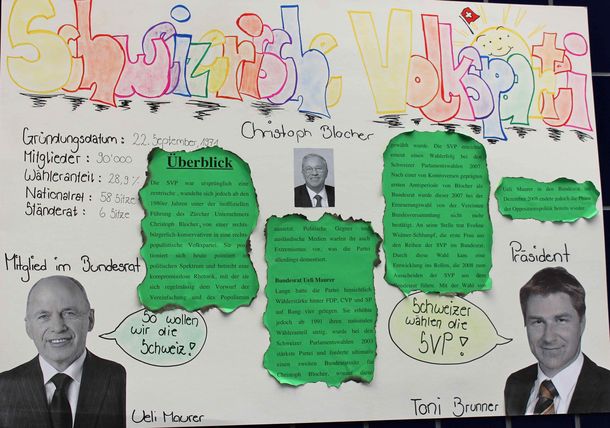 Schwizerische Volkspati
Gründungsdatum : 22. September, 1971
Mitglieder : 90'000
Wähleranteil : 28,9 %
Nationalrat : 58 Sitze
Ständerat : 6 Sitze
Christoph Blocher
Überblick
Die SVP war ursprünglich eine
zentrische, wandelte sich jedoch ab den
1980er Jahren unter der inoffiziellen
Führung des Zürcher Unternehmers
Christoph Blocher, von einer rechts-
bürgerlich-konservativen in eine rechts-
populistische Volkspartei. Sie po-
sitioniert sich heute pointiert
politischen Spektrum und betreibt eine
kompromisslose Rhetorik, mit der sie
sich regelmässig dem Vorwurf der
Vereinfachung und des Populismus
aussetzt. Politische Gegner
ausländische Medien warfen ihr auch
Extremismus vor, was die Partei
allerdings dementiert.
Bundesrat Ueli Maurer
Lange hatte die Partei hinsichtlich
Wählerstärke hinter FDP, CVP und SP
auf Rang vier gelegen. Sie erhöhte
jedoch ab 1991 ihren nationalen
Wähleranteil stetig, wurde bei den
Schweizer Parlamentswahlen 2003
stärkste Partei und forderte ultimativ
einen zweiten Bundesratssitz für
Christoph Blocher, womit dieser
gewählt wurde. Die SVP erreichte
erneut einen Wahlerfolg bei den
Schweizer Parlamentswahlen 2007.
Nach einer von Kontroversen geprägten
ersten Amtsperiode von Blocher als
Bundesrat wurde dieser 2007 bei der
Erneuerungswahl von der Vereinten
Bundesversammlung nicht mehr
bestätigt. An seine Stelle trat Eveline
Widmer-Schlumpf, die erste Frau aus
den Reihen der SVP im Bundesrat.
Durch diese Wahl kam eine
Entwicklung ins Rollen, die 2008 zum
Ausscheiden der SVP aus dem
Bundesrat führte. Mit der Wahl von
Ueli Maurer in den Bundesrat im
Dezember 2008 endete jedoch die Phase
der Oppositionspolitik bereits wieder.
Mitglied im Bundesrat
So wollen
wir die
Schweiz!
Ueli Maurer
Präsident
Schweizer
wählen die
SVP!
Toni Brunner